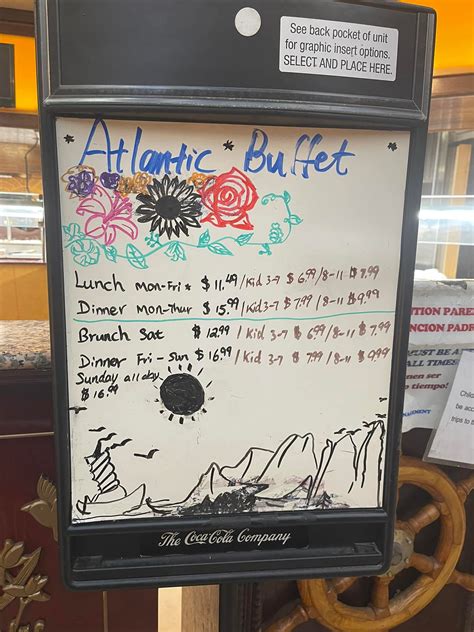 See back pocket of unit
for graphic insert options.
SELECT AND PLACE HERE.
Atlantic Buffet
Lunch Mon-Fri $11.49 / Kid 3-7 $6.99 / 8-11 $7.99
Dinner Mon-Thur $15.99 / Kid 3-7 $7.99 / 8-11 $9.99
Brunch Sat $12.99 / Kid 3-7 $6.99 / 8-11 $7.99
Dinner Fri-Sun $16.99 / Kid 3-7 $7.99 / 8-11 $9.99
Sunday all day
$16.99
The Coca-Cola Company
TION PARE
NCION PADR
MUST BE A
ALL TIMES
nen ser
e tiempo!
AGEMENT
Chil
be ac
trips to